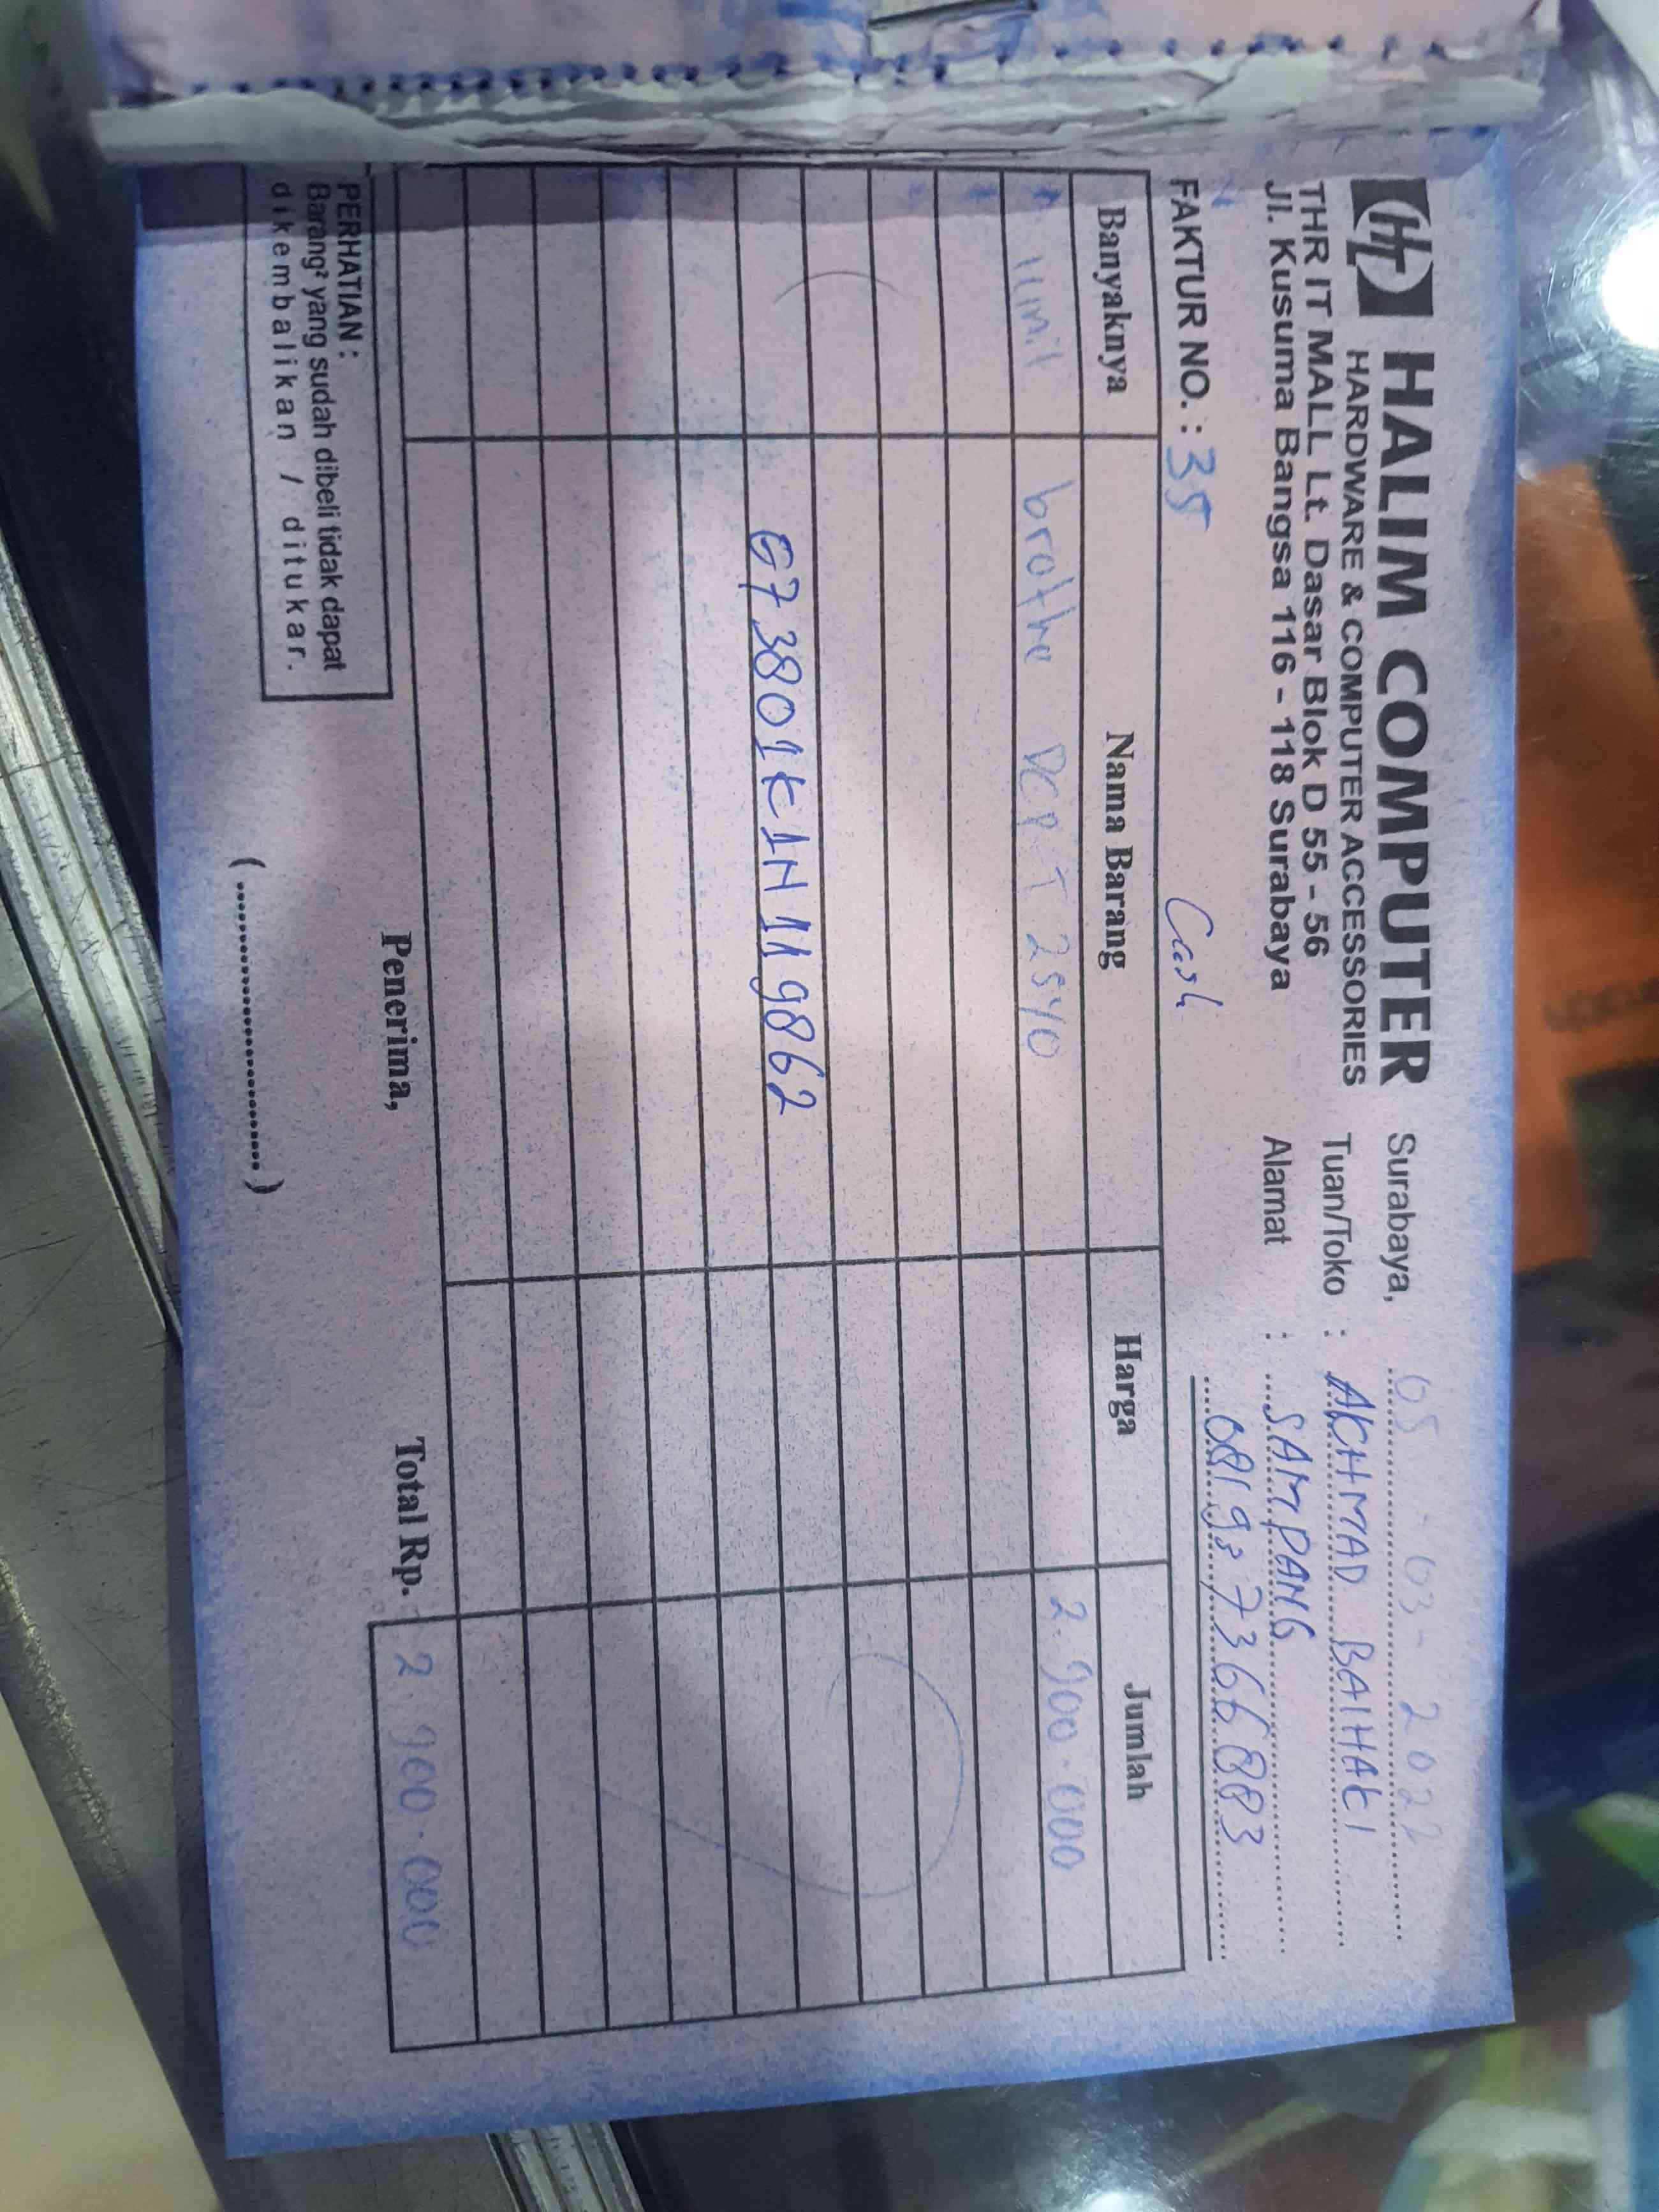 HT HALIM COMPUTER
HARDWARE & COMPUTER ACCESSORIES
THR IT MALL Lt. Dasar Blok D 55 - 56
Jl. Kusuma Bangsa 116 - 118 Surabaya
Surabaya, 05 - 03 - 2022
Tuan/Toko : AKHMAD BAIHAKI
Alamat : SAMPANG
FAKTUR NO. : 35 Cash
Banyaknya Nama Barang Harga Jumlah
1 unit brothe DCP T 2540 2.900.000
G73801K1N119862
Penerima, Total Rp. 2.900.000
PERHATIAN :
Barang² yang sudah dibeli tidak dapat
dikembalikan / ditukar.
(........................)